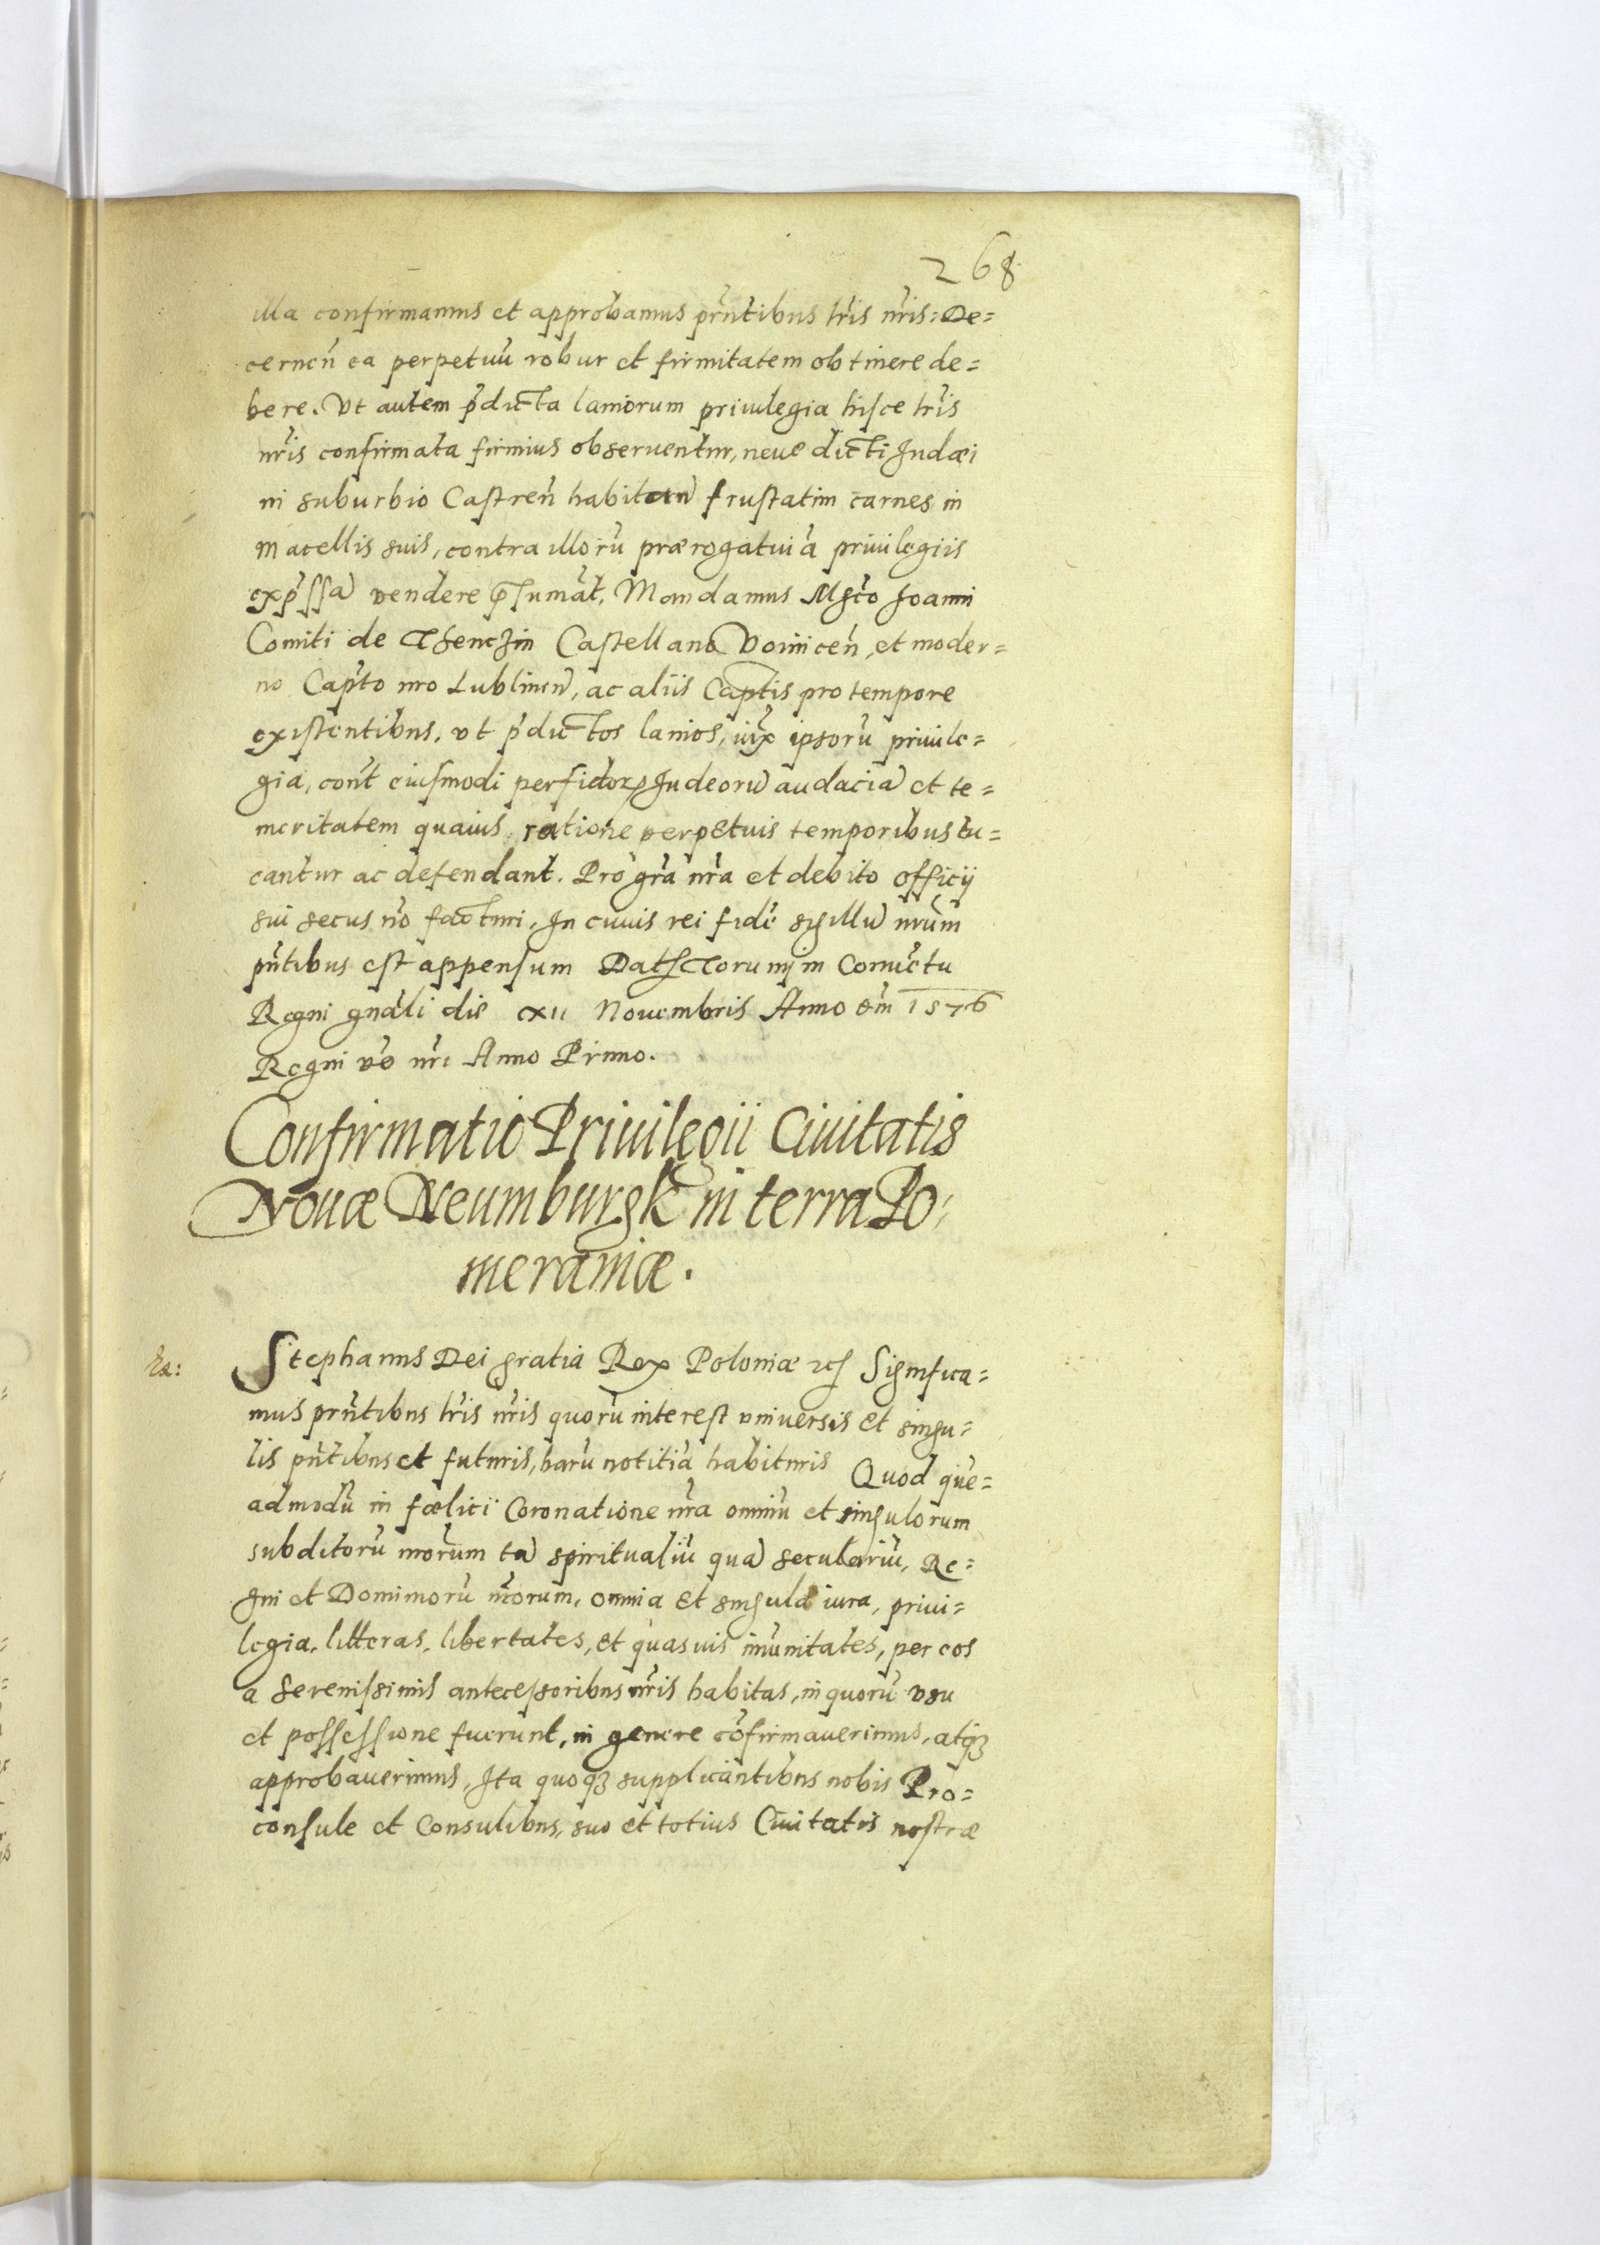 268
illa confirmamus et approbamus prñtibus lr̃is nr̃is: De=
cernen̄ ea perpetuū robur et firmitatem obtinere de=
bere. Vt autem p̃dicta laniorum priuilegia hisce lr̃is
nr̃is confirmata firmius obseruentur, neue dicti Judæi
in suburbio Castren̄ habitan̄ frustatim carnes in
macellis suis, contra illorū prærogatiuā priuilegiis
exp̃ssā vendere p̃sumāt, Mandamus Mgc̃o Joanni
Comiti de Thenczin Castellano Voinicen̄, et moder=
no Capt̃o nr̃o Lublinen̄, ac aliis Captis pro tempore
existentibus, vt p̃dictos lanios, iux̃ ipsorū priuile=
gia, cont̃ eiusmodi perfidorꝝ Judeorū audaciā et te=
meritatem quauis ratione perpetuis temporibus tu=
eantur ac defendant. Pro gr̃a nr̃a et debito officij
sui secus nō facturi, In cuius rei fidē sigillū nr̃um
pn̄tibus est appensum Dat. Torunij in Conuētu
Regni gnāli die XII Nouembris Anno Dm̄ 1576
Regni vō nr̃i Anno Primo.
Confirmatio Priuilegii Ciuitatis
Nouæ Neumburgk in terra Po=
meraniæ.
Stephanus Dei gratia Rex Poloniæ etc Significa=
mus prñtibus lr̃is nr̃is quorū interest vniuersis et singu=
lis pñtibus et futuris, harū notitiā habituris Quod quē=
admodū in fœlici Coronatione nr̃a omniū et singulorum
subditorū nr̃orum tā spiritualiū quā seculariū, Re=
gni et Dominiorū nr̃orum, omnia et singula iura, priui=
legia, litteras, libertates, et quasuis imūnitates, per eos
a Serenissimis antecessoribus nr̃is habitas, in quorū vsu
et possessione fuerunt, in genere cōfirmauerimus, atqꝫ
approbauerimus, Ita quoqꝫ supplicantibus nobis Pro=
consule et Consulibus, suo et totius Ciuitatis nostræ